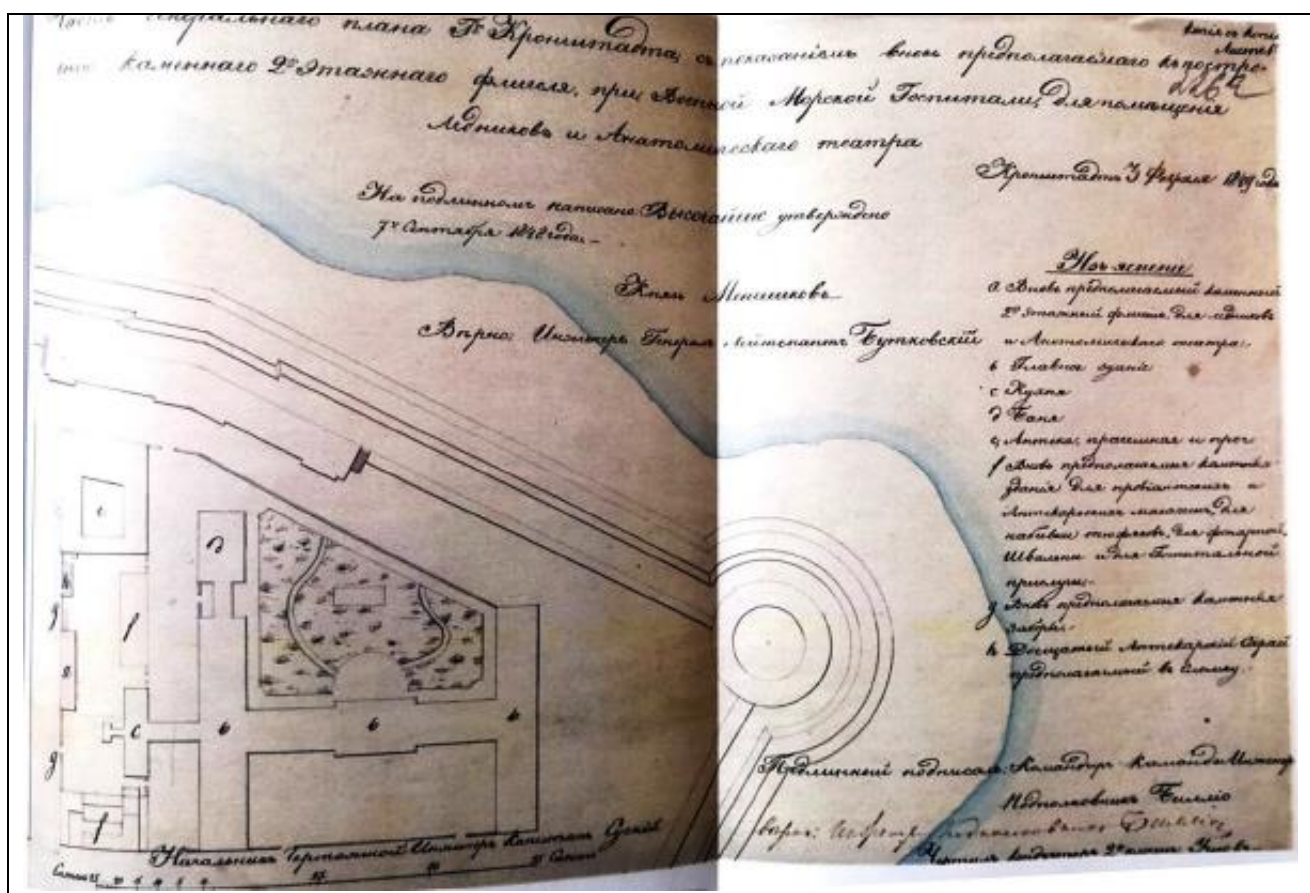 Часть Генерального плана Гᵃ Кронштадта, съ показаніемъ вновь предполагаемаго къ постро-
каменнаго 2ˣ Этажнаго флигеля, при Военной Морской Госпитали, для помѣщенія
ледниковъ и Анатомическаго театра
Копія съ копіи
226
Кронштадтъ 3 Февраля 1849 года
На подлинномъ написано Высочайше утверждено
7ᵍ Сентября 1848 года.
Князь Меншиковъ
Вѣрно: Инженеръ Генералъ Лейтенантъ Бутковскій
Изъясненіе
a Вновь предполагаемый каменный
2ˣ этажный флигель, для ледниковъ
и Анатомическаго театра.
b Главное зданіе
c Кухня
d Баня
e Аптека, прачешная и проч
f Вновь предполагаемыя каменныя
зданія для провіантскихъ и
Аптекарскихъ магазинъ, для
набивки тюфяковъ, для фонарной,
Швальни и для Госпитальной
прислуги.
g Вновь предполагаемыя каменныя
заборы.
h Досчатый Аптекарскій Сарай
предполагаемый въ сломку.
e
d
h
g
f
a
c
b
b
b
g
f
Подлинный подписалъ: Командиръ Команды Инженеръ
Подполковникъ
Вѣрно:
Начальникъ Чертежной Инженеръ Капитанъ
Чертилъ кондукторъ 2ᵍ класса